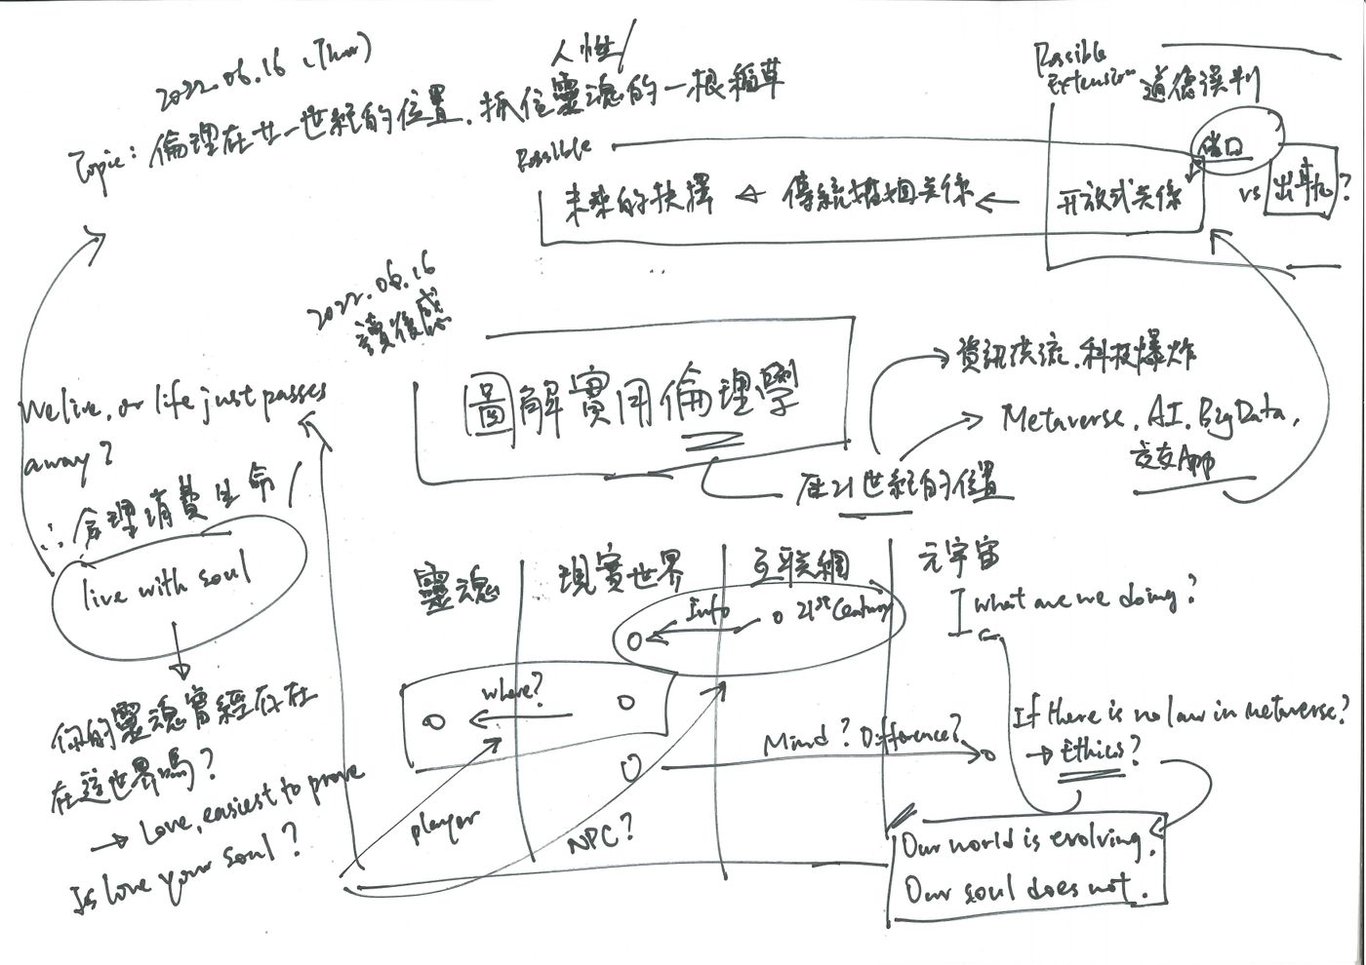 2022.06.16 (Thur)
人性/
Topic: 倫理在廿一世紀的位置, 抓住靈魂的一根稻草
Possible Extension
道德誤判
Possible
未來的抉擇 ← 傳統婚姻关係 ← 开放式关係
借口
vs 出軌?
2022.06.16
讀後感
圖解實用倫理學
資訊洪流, 科技爆炸
Metaverse, AI, Big Data,
交友App
在21世紀的位置
We live, or life just passes
away?
∴ 合理消費生命
live with soul
你的靈魂曾經存在
在這世界嗎?
→ Love, easiest to prove
Is love your soul?
靈魂 現實世界 互联網 元宇宙
Info
21st Century
what are we doing?
where?
Mind? Difference?
If there is no law in metaverse?
→ Ethics?
player
NPC?
Our world is evolving.
Our soul does not.